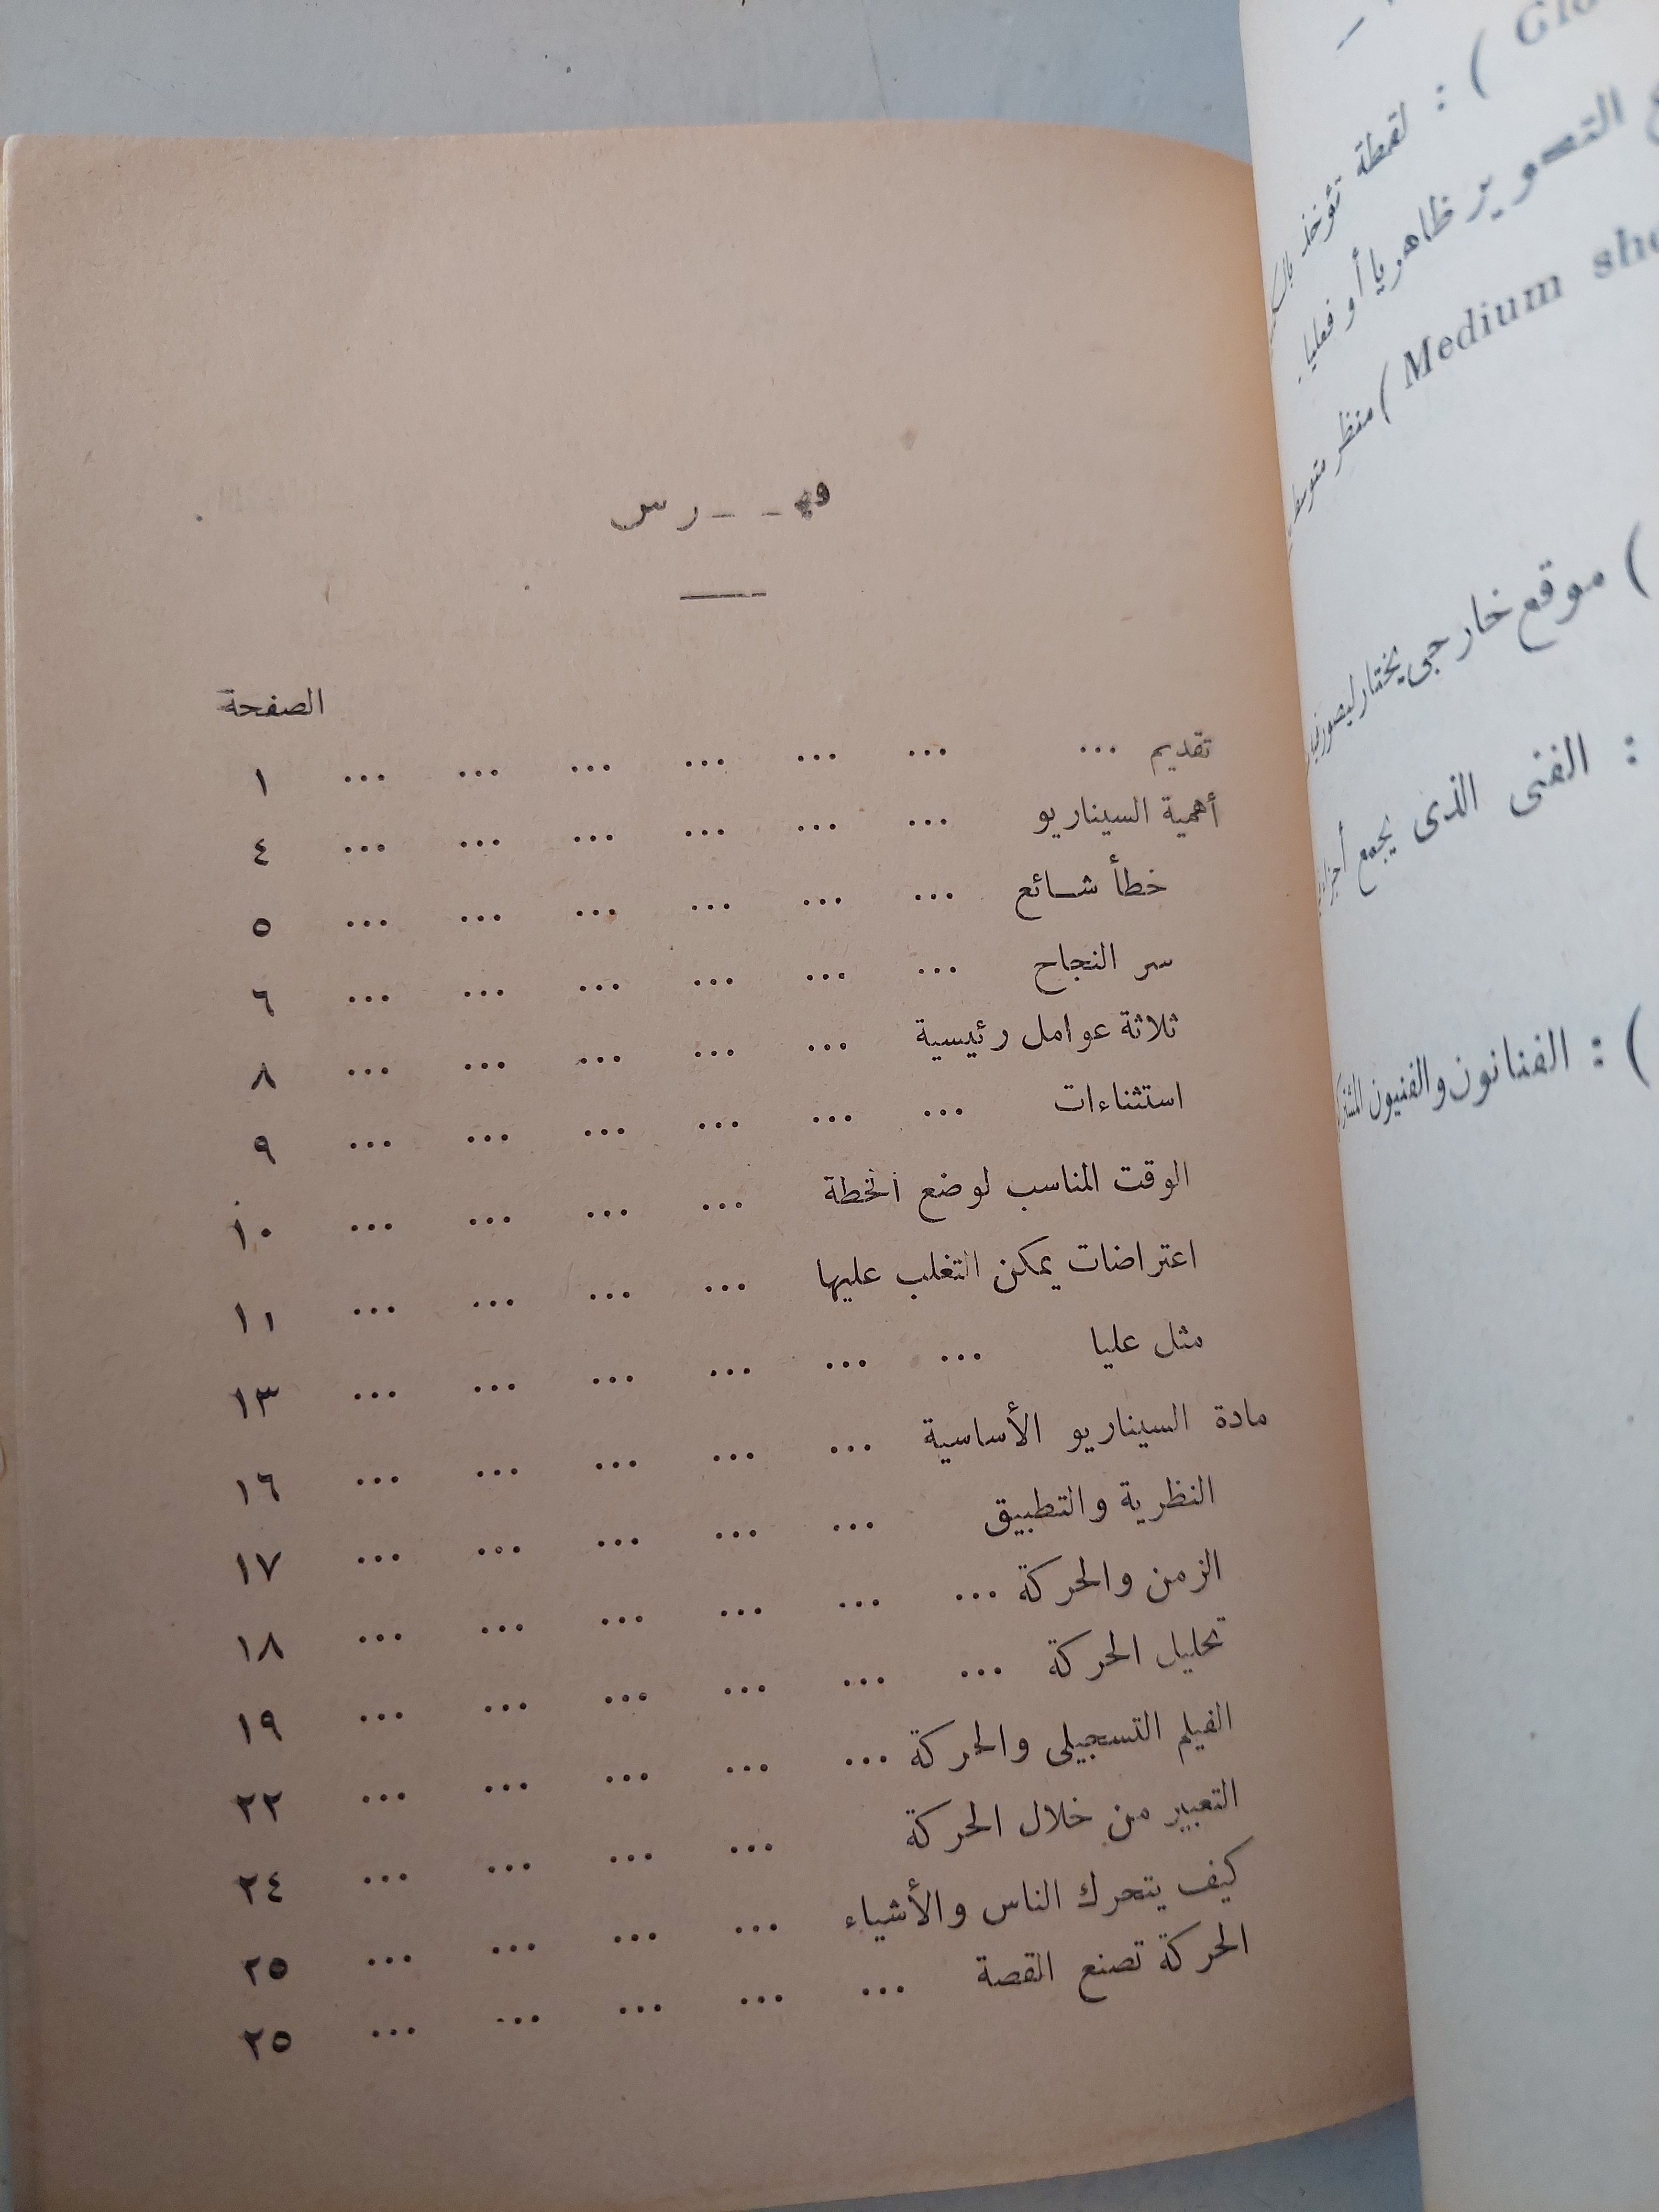 فهـ ـ ـرس
الصفحة
تقديم ... ... ... ... ... ... ... ١
أهمية السيناريو ... ... ... ... ... ... ٤
خطأ شـائع ... ... ... ... ... ... ٥
سر النجاح ... ... ... ... ... ... ٦
ثلاثة عوامل رئيسية ... ... ... ... ... ٨
استثناءات ... ... ... ... ... ... ٩
الوقت المناسب لوضع الخطة ... ... ... ... ١٠
اعتراضات يمكن التغلب عليها ... ... ... ... ١١
مثل عليا ... ... ... ... ... ... ١٣
مادة السيناريو الأساسية ... ... ... ... ... ١٦
النظرية والتطبيق ... ... ... ... ... ١٧
الزمن والحركة ... ... ... ... ... ... ١٨
تحليل الحركة ... ... ... ... ... ... ١٩
الفيلم التسجيلى والحركة ... ... ... ... ... ٢٢
التعبير من خلال الحركة ... ... ... ... ٢٤
كيف يتحرك الناس والأشياء ... ... ... ... ٢٥
الحركة تصنع القصة ... ... ... ... ... ٢٥
) : لقطة تؤخذ
التصوير ظاهريا أو فعليا .
Medium ) منظر متوسط
) موقع خارجى يختار ليصور
: الفنى الذى يجمع
) : الفنانون والفنيون